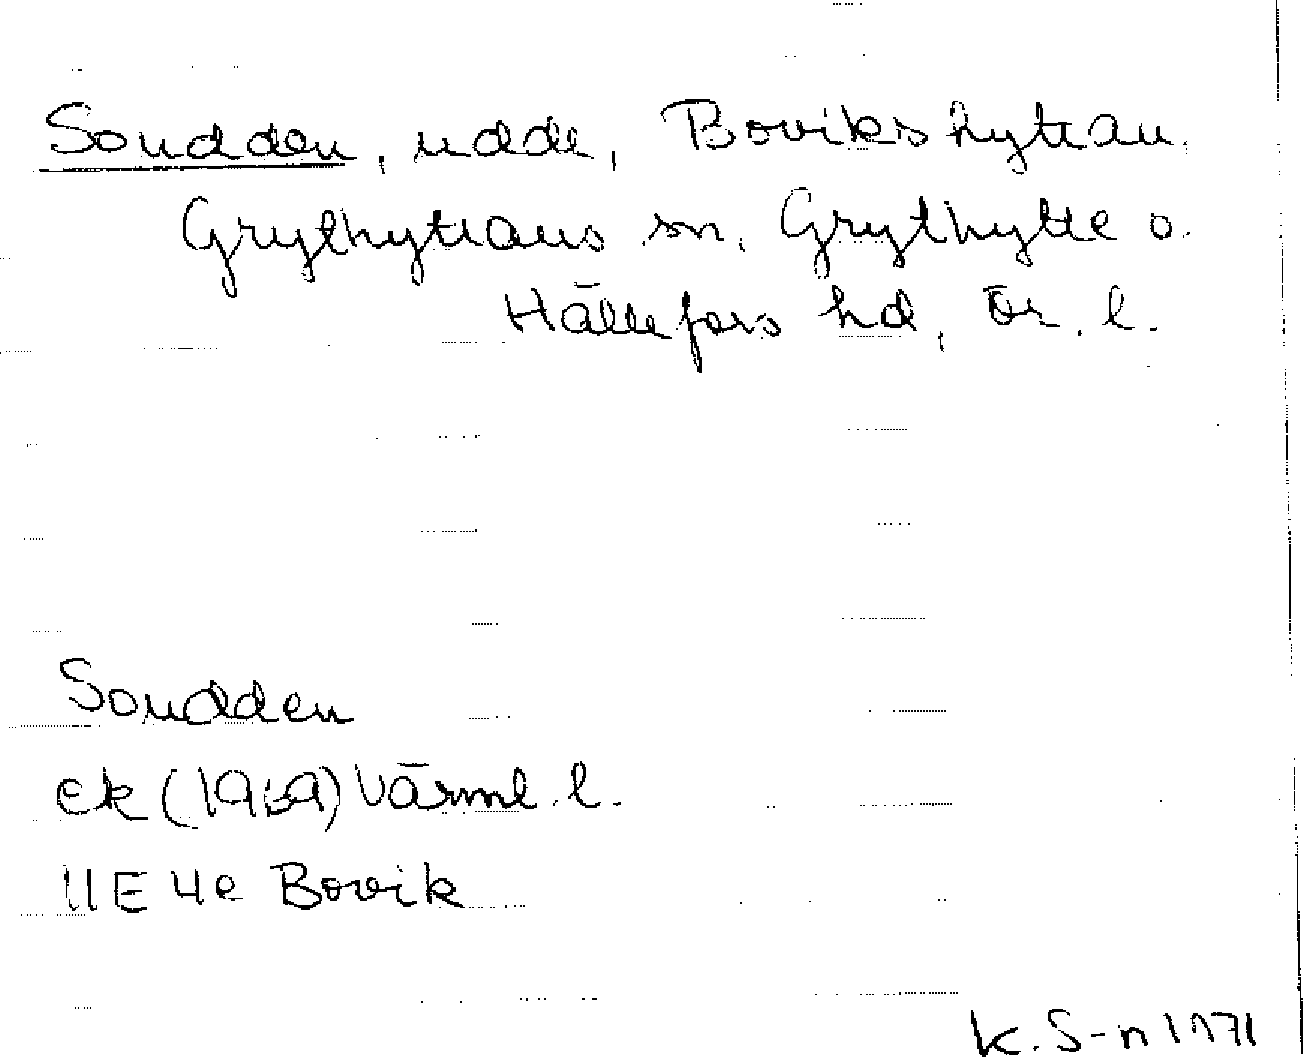 Soudden, udde, Bovikshyttan,
Grythyttans sn, Grythytte o.
Hällefors hd, Ör. l.
Soudden
ek (1969) Värml. l.
11E 4e Bovik
K. S-n 1971